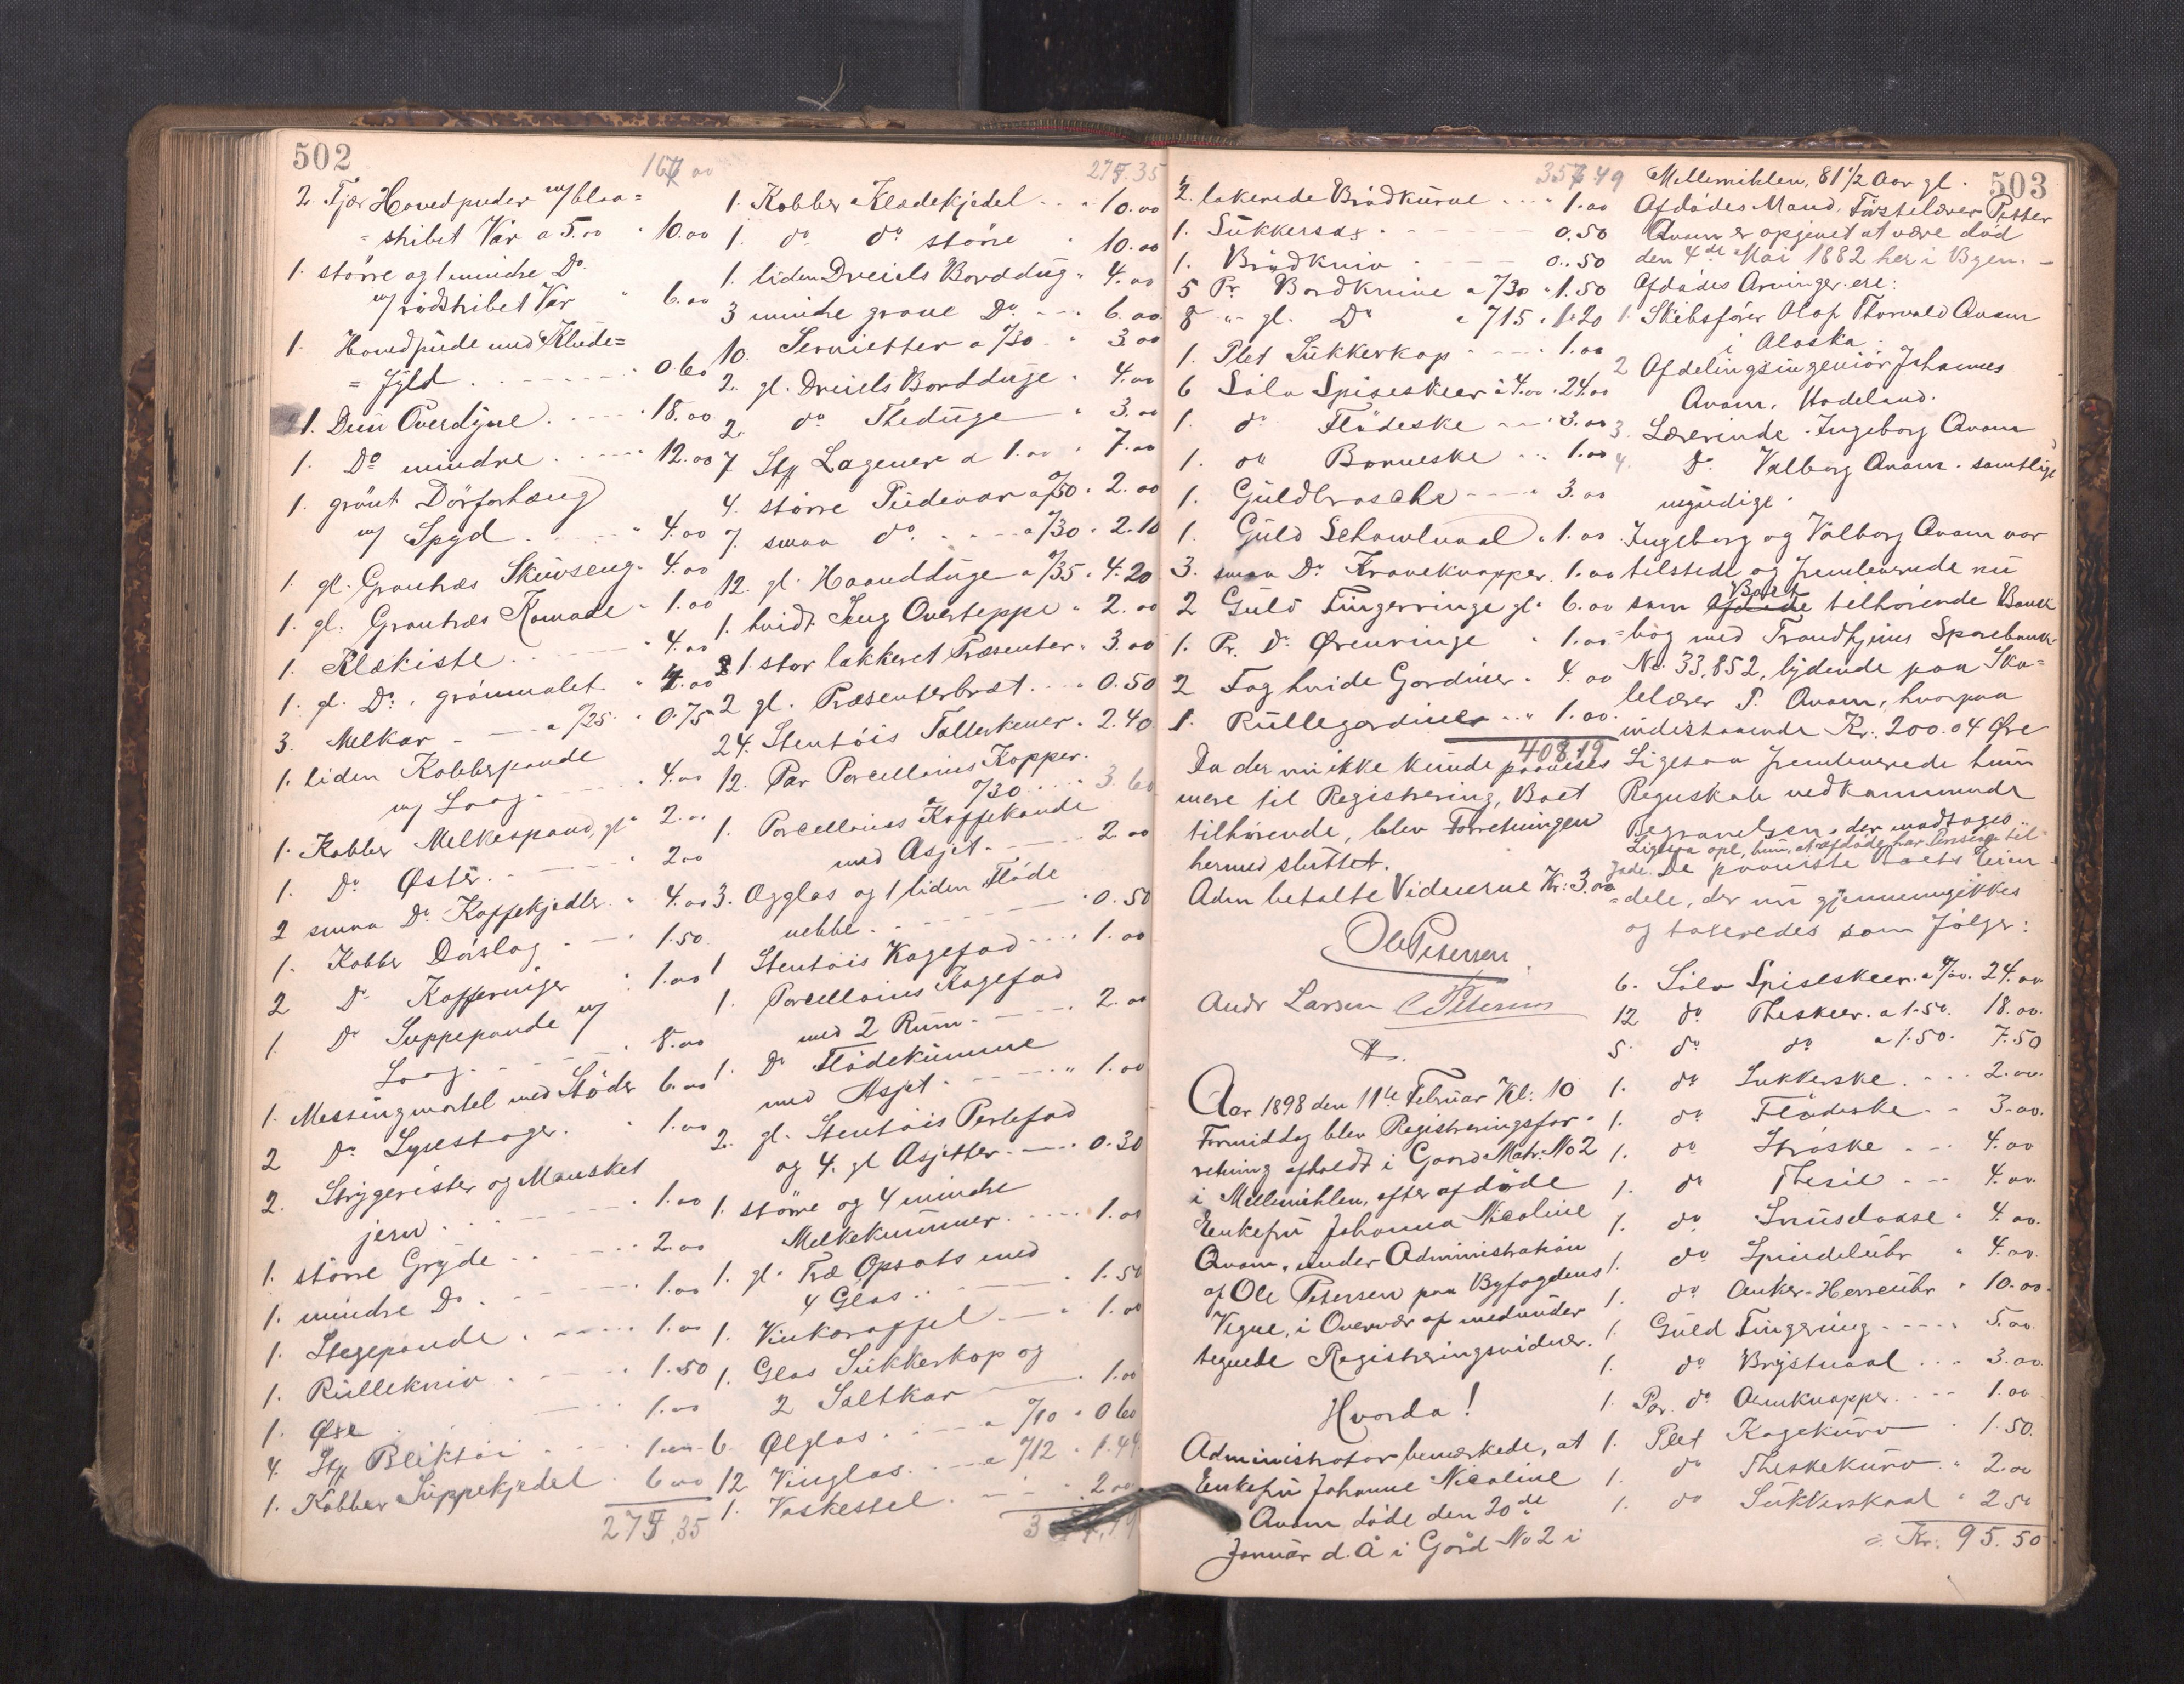 502
167 00
2. Fjær Hovedpuder m/ blaa=
=stribet Vár a 5.00 " 10.00
1. større og 1 mindre Do.
m/ rødstribet Vár " 6.00
1. Hovedpude med Klude=
=fyld. " 0.60
1. Dun Overdyne. " 18.00
1. Do mindre. " 12.00
1. grønt Dörforhæng
m/ Spyd. " 4.00
1. gl. Grantræs Skuvseng " 4.00
1. gl. Grantræs Komode " 1.00
1. Klæskiste. " 4.00
1. gl. Do, grönmalet. "
3. Melkar - a /25. " 0.75
1. liden Kobberpande
m/ Laag. " 4.00
1. Kobber Melkespand, gl. 2.00
1. Do Øster. " 2.00
2 smaa Do Kaffekjedler. " 4.00
1. Kobber Dörslag " 1.50
2 Do Kafferinger " 1.00
1. Do Suppepande m/
Laag. " 8.00
1. Messingmortel med Stöder 6.00
2 Do Lysestager. " 1.00
2. Strygerister og Mansket
jern. " 1.00
1. större Gryde " 2.00
1. mindre Do. " 1.00
1. Stegepande. " 1.00
1. Rullekniv. " 1.50
1. Øxe " 1.00
4. Stk Bliktöi " 1.00
1. Kobber Suppekjedel " 6.00
275.35
275.35
1. Kobber Klædekjedel " 10.00
1. do do större " 10.00
1. liden Dreiels Borddug " 4.00
3 mindre grove Do. " 6.00
10. Servietter a /30 " 3.00
2. gl. Dreiels Bordduge " 4.00
2. do Theduge " 3.00
7 Stk Lagener a 1.00 " 7.00
4. större Pudevar a /50 " 2.00
7. smaa do. a /30 " 2.10
12. gl. Haandduge a /35 " 4.20
1. hvidt Seng Overteppe " 2.00
1 stor lakkeret Præsenter " 3.00
2 gl. Præsenterbræt. " 0.50
24. Stentöis Tallerkener. 2.40
12. Par Porcellains Kopper.
a /30 " 3.60
1. Porcellains Kaffekande
med Asjet. " 2.00
3. Ægglas og 1 liden Flöde
nebbe. " 0.50
1 Stentöis Kagefad " 1.00
1. Porcellains Kagefad
med 2 Rum. " 2.00
1. Do Flödekumme
med Asjet. " 1.00
2. gl. Stentöis Perlefad
og 4. gl Asjetter. " 0.30
1. större og 4 mindre
Melkekummer. " 1.00
1. gl. Træ Opsats med
4 Glas. " 1.50
1. Vinkaraffel " 1.00
1. Glas Sukkerkop og
2 Saltkar " 1.00
6. Ølglas. a /10 " 0.60
12. Vinglas. a /12 " 1.44
1. Vaskestel " 2.00
503
357 49
2. lakerede Brödkurve " 1.00
1. Sukkersax. 0.50
1. Brödkniv 0.50
5 Pr. Bordknive a /30 " 1.50
8 " gl. Do a /15 " 1.20
1. Plet Sukkerkop " 1.00
6 Sölv Spiseskeer a 4.00 " 24.00
1. do Flödeske " 3.00
1. do Barneske " 1.00
1. Guldbrosche " 3.00
1. Guld Schawlnaal " 1.00
3. smaa Do Kraveknapper. 1.00
2 Guld Fingerringe gl. 6.00
1. Pr. Do Ørenringe " 1.00
2 Fag hvide Gardiner " 4.00
1. Rullegardiner " 1.00
408.19
Da der nu ikke kunde paavises
mere til Registrering, Boet
tilhørende, blev Forretningen
hermed sluttet.
Adm betalte Vidnerne Kr: 3.00
Ole Petersen
Andr Larsen C Petersen
Aar 1898 den 11te Februar Kl: 10
Formiddag blev Registreringsfor=
retning afholdt i Gaard Matr: No 2
i Mellemihlen, efter afdöde
Enkefru Johanna Nicoline
Qvam, under Administration
af Ole Petersen paa Byfogdens
Vegne, i Overvær af medunder
tegnede Registreringsvidner.
Hvorda!
Administrator bemærkede, at
Enkefru Johanne Nicoline
Qvam döde den 20de
Januar d. A i Gård No 2 i
Mellemihlen, 81 1/2 Aar gl.
Afdödes Mand, Förstelærer Petter
Qvam er opgivet at være död
den 4de Mai 1882 her i Byen. -
Afdödes Arvinger ere:
1. Skibsförer Olaf Thorvald Qvam
i Alaska.
2 Afdelingsingeniör Johannes
Qvam, Hadeland.
3. Lærerinde Ingeborg Qvam
4. Do. Valborg Qvam. samtlige
myndige.
Ingeborg og Valborg Qvam var
tilstede og fremleverede en
som Boet tilhörende Bank
=bog med Trondhjems Sparebank
No. 33,852, lydende paa Sko=
lelærer P. Qvam, hvorpaa
indestaaende Kr. 200.04 Øre
Ligesaa fremleverede hun
Regnskab vedkommende
Begravelsen, der modtoges
Ligesaa opl. hun, at afdöde har Pension til
gode. De paaviste Boets Eien
=dele, der nu gjennemgikkes
og taxeredes som fölger:
6. Sölv Spiseskeer. a 4/00. 24.00
12 do Theskeer. a 1.50. 18.00.
5. do do a 1.50. 7.50
1. do Sukkerske. 2.00.
1. do Flödeske. 3.00.
1. do Ströske 4.00
1. do Thesil 4.00.
1. do Snusdaase " 4.00.
1. do Spindeluhr " 4.00.
1. do Anker-Herreuhr " 10.00.
1. Guld Fingering 5.00.
1. do Brystnaal 3.00.
1. Par. do Ærmknapper. 1.00
1. Plet Kagekurv " 1.50.
1. do Theskekurv. " 2.00
1. do Sukkerskaal " 2.50
= Kr: 95.50